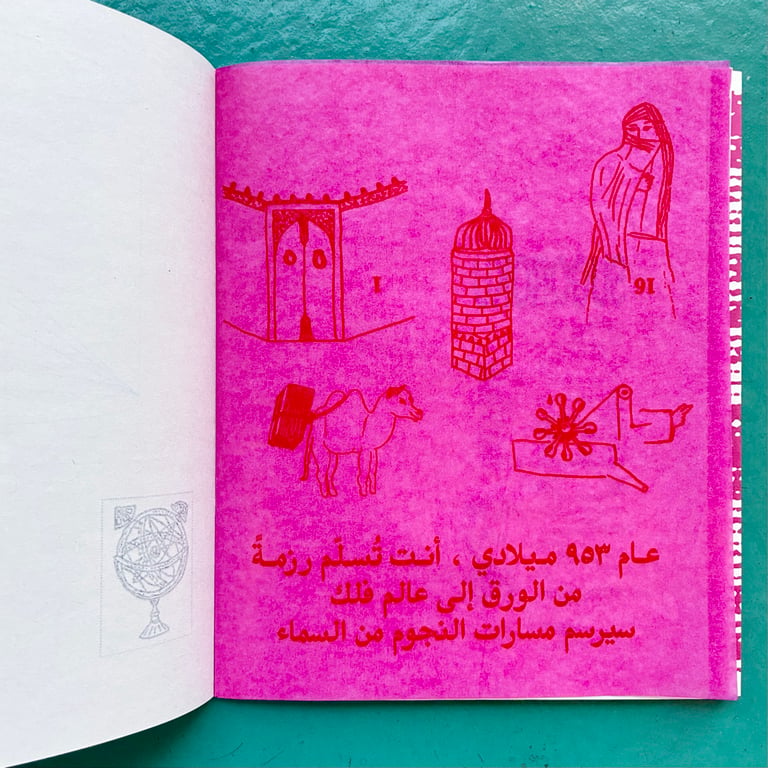 1
16
عام ٩٥٣ ميلادي ، أنت تُسلّم رزمةً
من الورق إلى عالم فلك
سيرسم مسارات النجوم من السماء